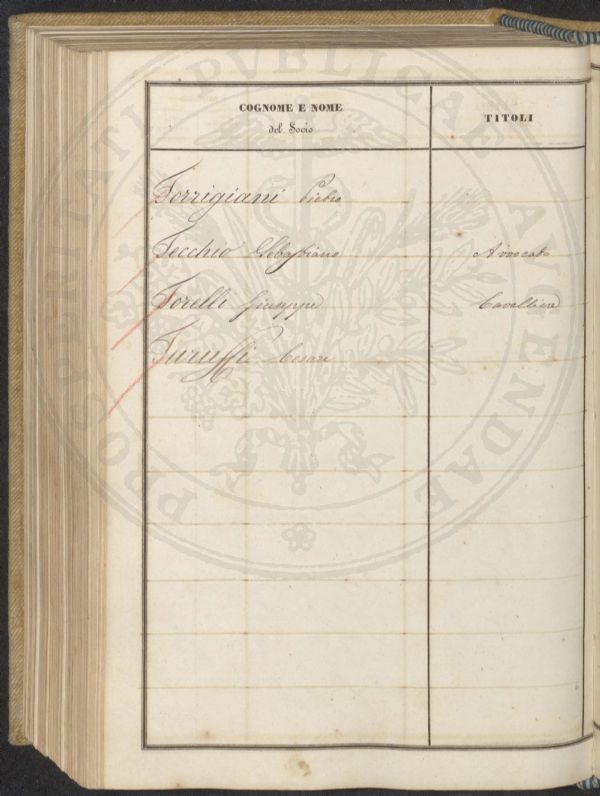 COGNOME E NOME
del Socio
TITOLI
Torrigiani Pietro
Tecchio Sebastiano Avvocato
Torelli Giuseppe Cavaliere
Turuffi Cesare
PROSPERITATI PVBLICAE AVGENDAE